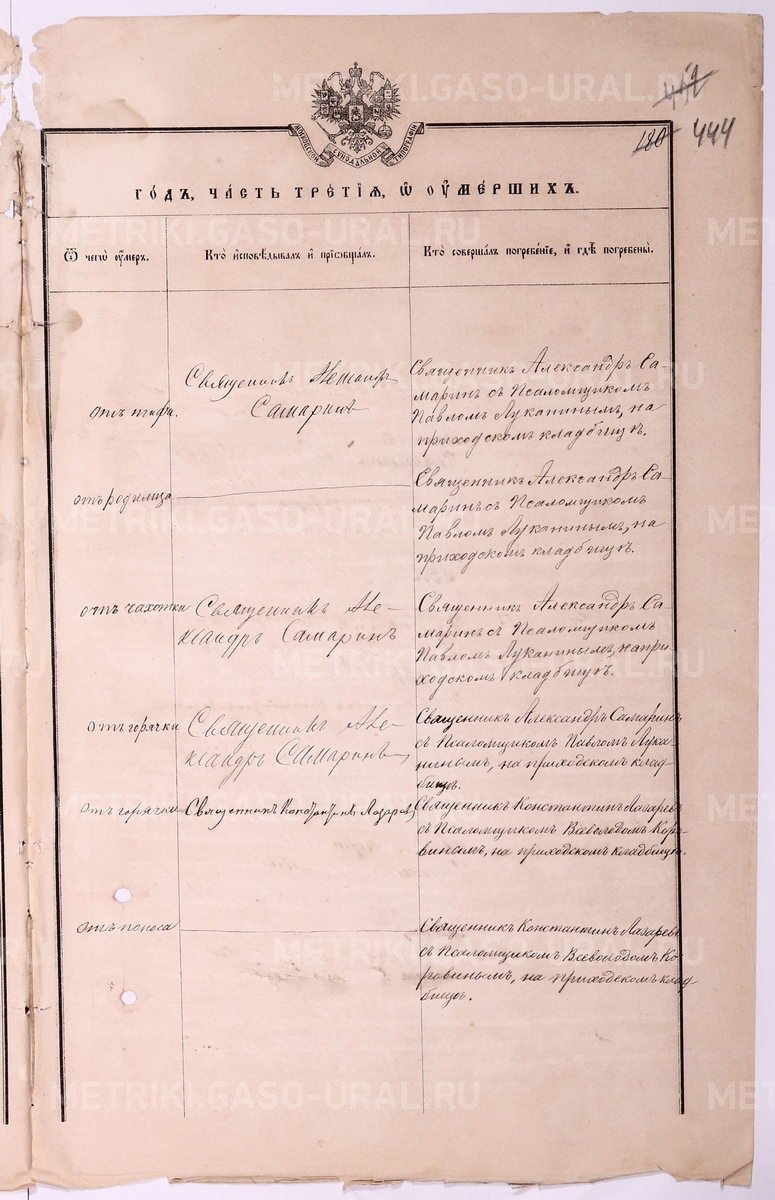 442
180 444
МОСКОВСКОЙ СѴНОДАЛЬНОЙ ТИПОГРАФІИ
ГОДЪ, ЧАСТЬ ТРЕТІЯ, Ѿ ОУМЕРШИХЪ.
Ѿ чегѡ оумеръ.
Кто исповѣдывалъ и пріобщалъ.
Кто совершалъ погребеніе, и гдѣ погребены.
Священникъ
Самаринъ
Священникъ Александръ Са-
маринъ съ Псаломщикомъ
Павломъ Луканинымъ, на
приходскомъ кладбищѣ.
отъ родимца
Священникъ Александръ Са-
маринъ съ Псаломщикомъ
Павломъ Луканинымъ, на
приходскомъ кладбищѣ.
отъ чахотки
Священникъ Але-
ксандръ Самаринъ
Священникъ Александръ Са-
маринъ съ Псаломщикомъ
Павломъ Луканинымъ, на при-
ходскомъ кладбищѣ.
отъ горячки
Священникъ Але-
ксандръ Самаринъ,
Священникъ Александръ Самаринъ
съ Псаломщикомъ Павломъ Лука-
нинымъ, на приходскомъ клад-
бищѣ.
отъ горячки
Священникъ Константинъ Лазаревъ,
Священникъ Константинъ Лазаревъ
съ Псаломщикомъ Всеволодомъ Коро-
винымъ, на приходскомъ кладбищѣ.
отъ поноса
Священникъ Константинъ Лазаревъ
съ Псаломщикомъ Всеволодомъ Ко-
ровинымъ, на приходскомъ клад-
бищѣ.
METRIKI.GASO-URAL.RU